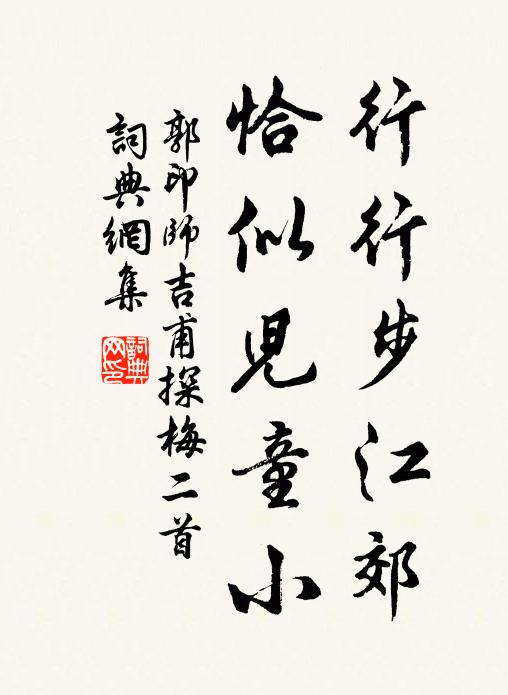 行行步江郊
恰似兒童小
郭印師吉甫探梅二首
詞典網集
詞典网印